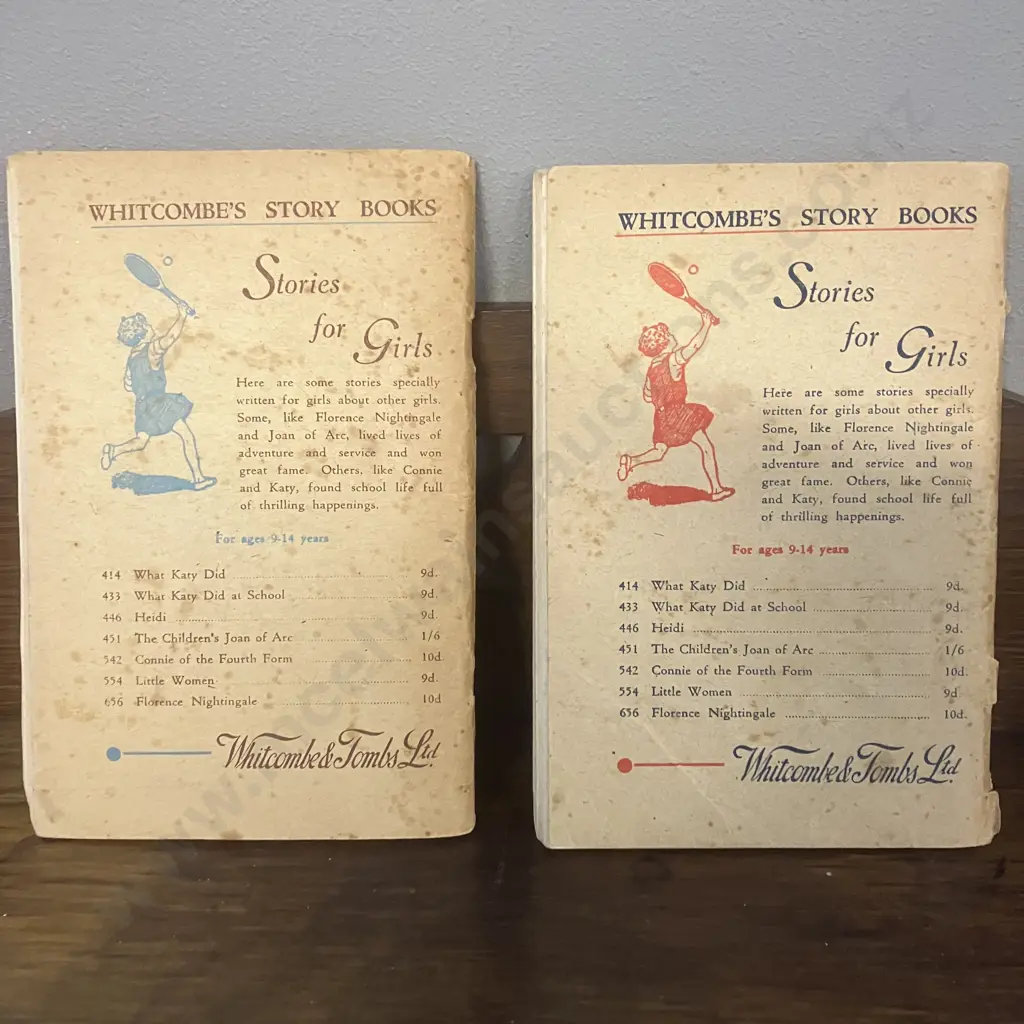 WHITCOMBE'S STORY BOOKS
Stories
for Girls
Here are some stories specially
written for girls about other girls.
Some, like Florence Nightingale
and Joan of Arc, lived lives of
adventure and service and won
great fame. Others, like Connie
and Katy, found school life full
of thrilling happenings.
For ages 9-14 years
414 What Katy Did 9d.
433 What Katy Did at School 9d.
446 Heidi 9d.
451 The Children's Joan of Arc 1/6
542 Connie of the Fourth Form 10d.
554 Little Women 9d.
656 Florence Nightingale 10d
Whitcombe & Tombs Ltd.
WHITCOMBE'S STORY BOOKS
Stories
for Girls
Here are some stories specially
written for girls about other girls.
Some, like Florence Nightingale
and Joan of Arc, lived lives of
adventure and service and won
great fame. Others, like Connie
and Katy, found school life full
of thrilling happenings.
For ages 9-14 years
414 What Katy Did 9d.
433 What Katy Did at School 9d.
446 Heidi 9d.
451 The Children's Joan of Arc 1/6
542 Connie of the Fourth Form 10d.
554 Little Women 9d
656 Florence Nightingale 10d.
Whitcombe & Tombs Ltd.